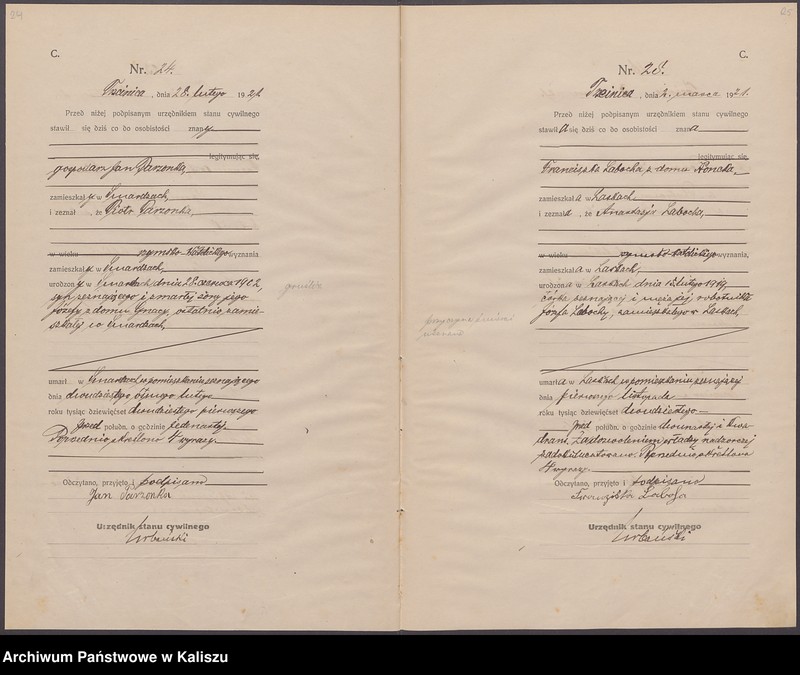 24
C.
Nr. 24.
Trzcinica, dnia 28. lutego 1921
Przed niżej podpisanym urzędnikiem stanu cywilnego
stawił się dziś co do osobistości znany
legitymując się,
gospodarz Jan Parzonka,
zamieszkały w Smardzach,
i zeznał, że Piotr Parzonka,
w wieku rzymsko-katolickiego wyznania,
zamieszkały w Smardzach,
urodzony w Smardzach dnia 28 czerwca 1902,
syn zeznającego i zmarłej żony jego
Józefy z domu ostatnio zamie-
szkały w Smardzach,
umarł w Smardzach w pomieszkaniu zeznającego
dnia dwudziestego ósmego lutego
roku tysiąc dziewięćset dwudziestego pierwszego
przed połudn. o godzinie jedenastej.
Poprzednio skreślono 4 wyrazy.
Odczytano, przyjęto i podpisano
Jan Parzonka
Urzędnik stanu cywilnego
Urbański
25
C.
Nr. 25.
Trzcinica, dnia 2. marca 1921.
Przed niżej podpisanym urzędnikiem stanu cywilnego
stawiła się dziś co do osobistości znana
legitymując się,
Franciszka Labocha z domu Konaka,
zamieszkała w Laskach,
i zeznała, że Anastazja Labocha,
w wieku rzymsko-katolickiego wyznania,
zamieszkała w Laskach,
urodzona w Laskach dnia 15 lutego 1919,
córka zeznającej i męża jej robotnika
Józefa Labochy, zamieszkałego w Laskach,
umarła w Laskach w pomieszkaniu zeznającej
dnia pierwszego listopada
roku tysiąc dziewięćset dwudziestego
przed połudn. o godzinie dwunastej i kwa-
drans. Za dozwoleniem władzy nadzorczej
zadokumentowano. Poprzednio skreślono
4 wyrazy.
Odczytano, przyjęto i podpisano
Franciszka Laboha
Urzędnik stanu cywilnego
Urbański
Archiwum Państwowe w Kaliszu